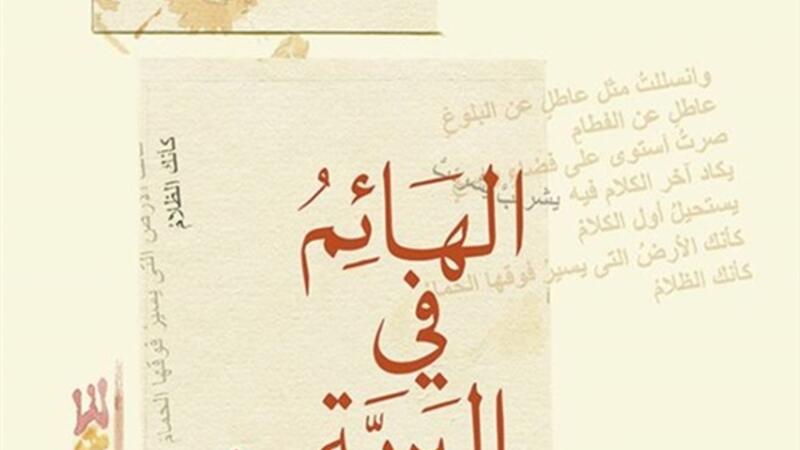 وانسللتُ مثل عاطلٍ عن البلوغِ
عاطلٍ عن الفطامِ
صرتُ أستوى على
يكاد آخر الكلام فيه يشربُ
يستحيلُ أول الكلامْ
كأنك الأرضُ التى يسيرُ فوقها الحمامْ
كأنك الظلامْ
الهَائِمُ
في
البَريَّة
الأرض التى يسيرُ فوقها الحمامْ
كأنك الظلامْ